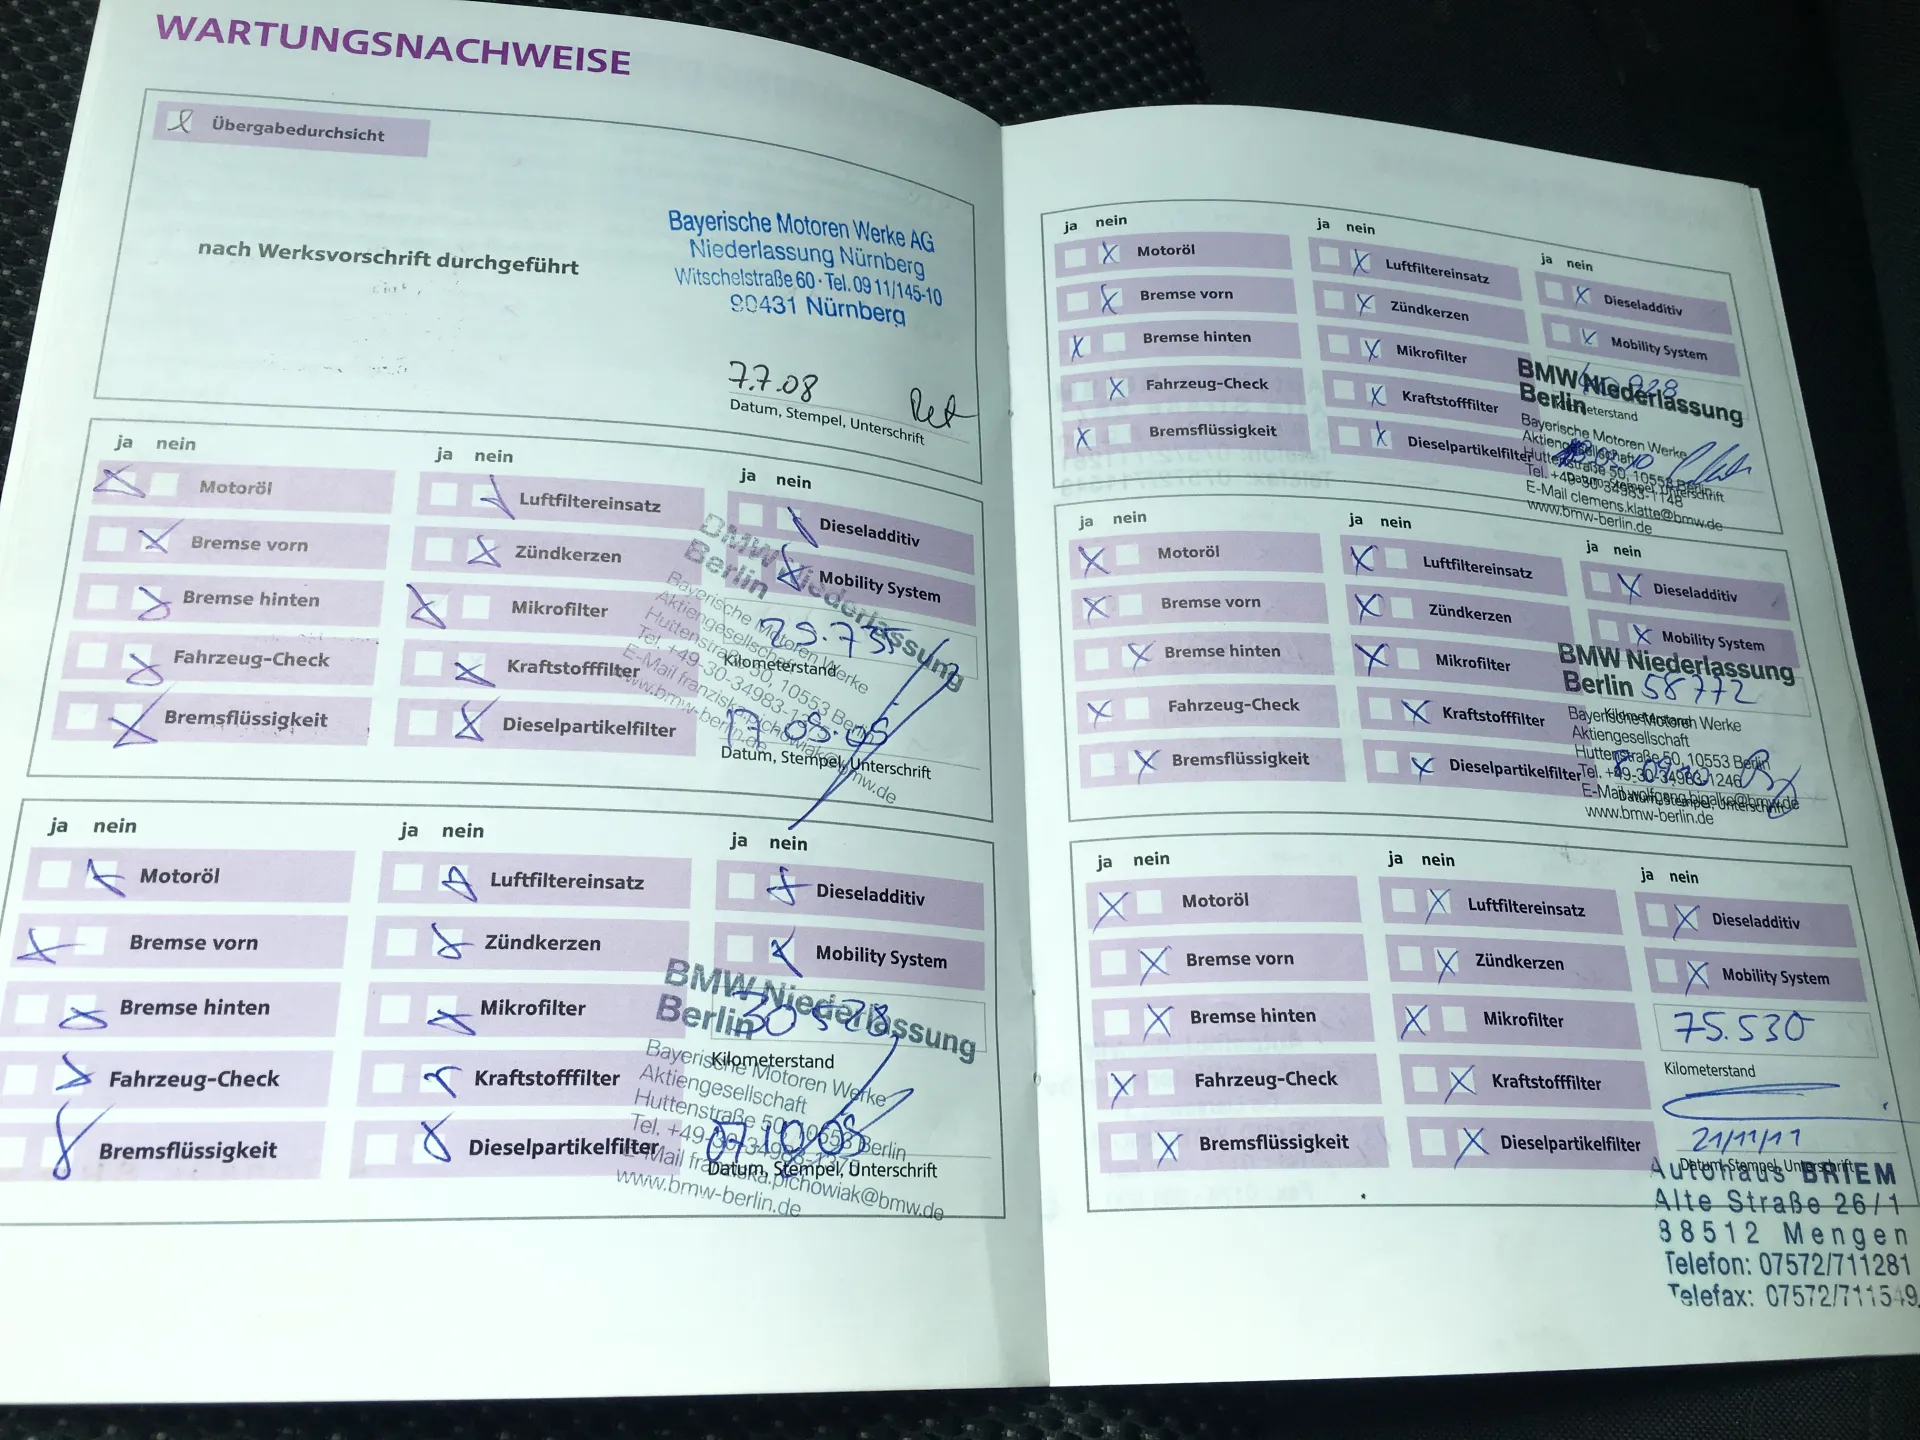 WARTUNGSNACHWEISE
Übergabedurchsicht
nach Werksvorschrift durchgeführt
Bayerische Motoren Werke AG
Niederlassung Nürnberg
Witschelstraße 60 · Tel. 09 11/145-10
90431 Nürnberg
7.7.08
Datum, Stempel, Unterschrift
ja nein
Motoröl
Bremse vorn
Bremse hinten
Fahrzeug-Check
Bremsflüssigkeit
ja nein
Luftfiltereinsatz
Zündkerzen
Mikrofilter
Kraftstofffilter
Dieselpartikelfilter
ja nein
Dieseladditiv
Mobility System
BMW Niederlassung
Berlin
29.735
Kilometerstand
Bayerische Motoren Werke
Aktiengesellschaft
Huttenstraße 50, 10553 Berlin
Tel. +49-30-34983-
E-Mail franziska.pichowiak@bmw.de
www.bmw-berlin.de
Datum, Stempel, Unterschrift
ja nein
Motoröl
Bremse vorn
Bremse hinten
Fahrzeug-Check
Bremsflüssigkeit
ja nein
Luftfiltereinsatz
Zündkerzen
Mikrofilter
Kraftstofffilter
Dieselpartikelfilter
ja nein
Dieseladditiv
Mobility System
BMW Niederlassung
Berlin
30528
Kilometerstand
Bayerische Motoren Werke
Aktiengesellschaft
Huttenstraße 50, 10553 Berlin
Tel. +49-30-34983-
E-Mail franziska.pichowiak@bmw.de
www.bmw-berlin.de
Datum, Stempel, Unterschrift
ja nein
Motoröl
Bremse vorn
Bremse hinten
Fahrzeug-Check
Bremsflüssigkeit
ja nein
Luftfiltereinsatz
Zündkerzen
Mikrofilter
Kraftstofffilter
Dieselpartikelfilter
ja nein
Dieseladditiv
Mobility System
BMW Niederlassung
Berlin
Kilometerstand
Bayerische Motoren Werke
Aktiengesellschaft
Huttenstraße 50, 10553 Berlin
Tel. +49-30-34983-1148
Datum, Stempel, Unterschrift
E-Mail clemens.klatte@bmw.de
www.bmw-berlin.de
ja nein
Motoröl
Bremse vorn
Bremse hinten
Fahrzeug-Check
Bremsflüssigkeit
ja nein
Luftfiltereinsatz
Zündkerzen
Mikrofilter
Kraftstofffilter
Dieselpartikelfilter
ja nein
Dieseladditiv
Mobility System
BMW Niederlassung
Berlin
58772
Kilometerstand
Bayerische Motoren Werke
Aktiengesellschaft
Huttenstraße 50, 10553 Berlin
Tel. +49-30-34983-1246
E-Mail wolfgang.bigalke@bmw.de
Datum, Stempel, Unterschrift
www.bmw-berlin.de
ja nein
Motoröl
Bremse vorn
Bremse hinten
Fahrzeug-Check
Bremsflüssigkeit
ja nein
Luftfiltereinsatz
Zündkerzen
Mikrofilter
Kraftstofffilter
Dieselpartikelfilter
ja nein
Dieseladditiv
Mobility System
75.530
Kilometerstand
21/11/11
Datum, Stempel, Unterschrift
Autohaus BRIEM
Alte Straße 26/1
88512 Mengen
Telefon: 07572/711281
Telefax: 07572/711549